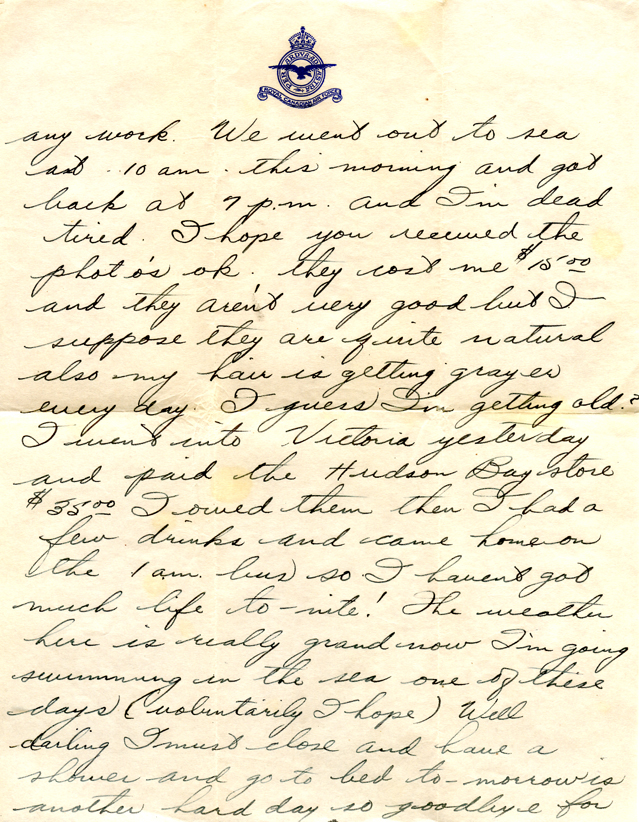 PER ARDUA AD ASTRA
ROYAL CANADIAN AIR FORCE
any work. We went out to sea
at 10 am. this morning and got
back at 7 p.m. and I'm dead
tired. I hope you received the
photo's ok. they cost me $15.00
and they aren't very good but I
suppose they are quite natural
also my hair is getting grayer
every day. I guess I'm getting old.?
I went into Victoria yesterday
and paid the Hudson Bay store
$35.00 I owed them then I had a
few drinks and came home on
the 1 am. bus so I haven't got
much life to-nite! The weather
here is really grand now I'm going
swimming in the sea one of these
days (voluntarily I hope) Well
darling I must close and have a
shower and go to bed to-morrow is
another hard day so goodbye for